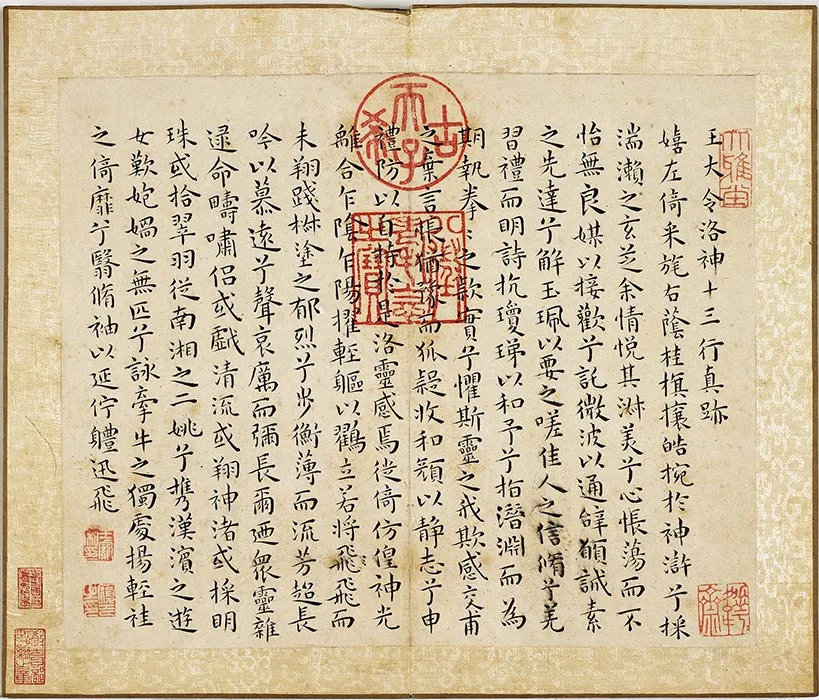 王大令洛神十三行真跡
嬉左倚采旄右蔭桂旗攘皓捥於神滸兮採
湍瀨之玄芝余情悅其淑美兮心悵蕩而不
怡無良媒以接歡兮託微波以通辭願誠素
之先達兮解玉珮以要之嗟佳人之信脩兮羌
習禮而明詩抗瓊珶以和予兮指潛淵而為
期執拳〻之款實兮懼斯靈之我欺感交甫
之棄言悵猶豫而狐疑收和顏以静志兮申
禮防以自持於是洛靈感焉徙倚仿偟神光
離合乍陰乍陽擢輕軀以鶴立若將飛飛而
未翔踐椒塗之郁烈兮步衡薄而流芳超長
吟以慕遠兮聲哀厲而彌長爾迺眾靈雜
遝命疇嘯侶或戲清流或翔神渚或採明
珠或拾翠羽從南湘之二姚兮攜漢濱之遊
女歎炮媧之無匹兮詠牽牛之獨處揚輕袿
之倚靡兮翳脩袖以延佇體迅飛
古希天子
八徵耄念之寶